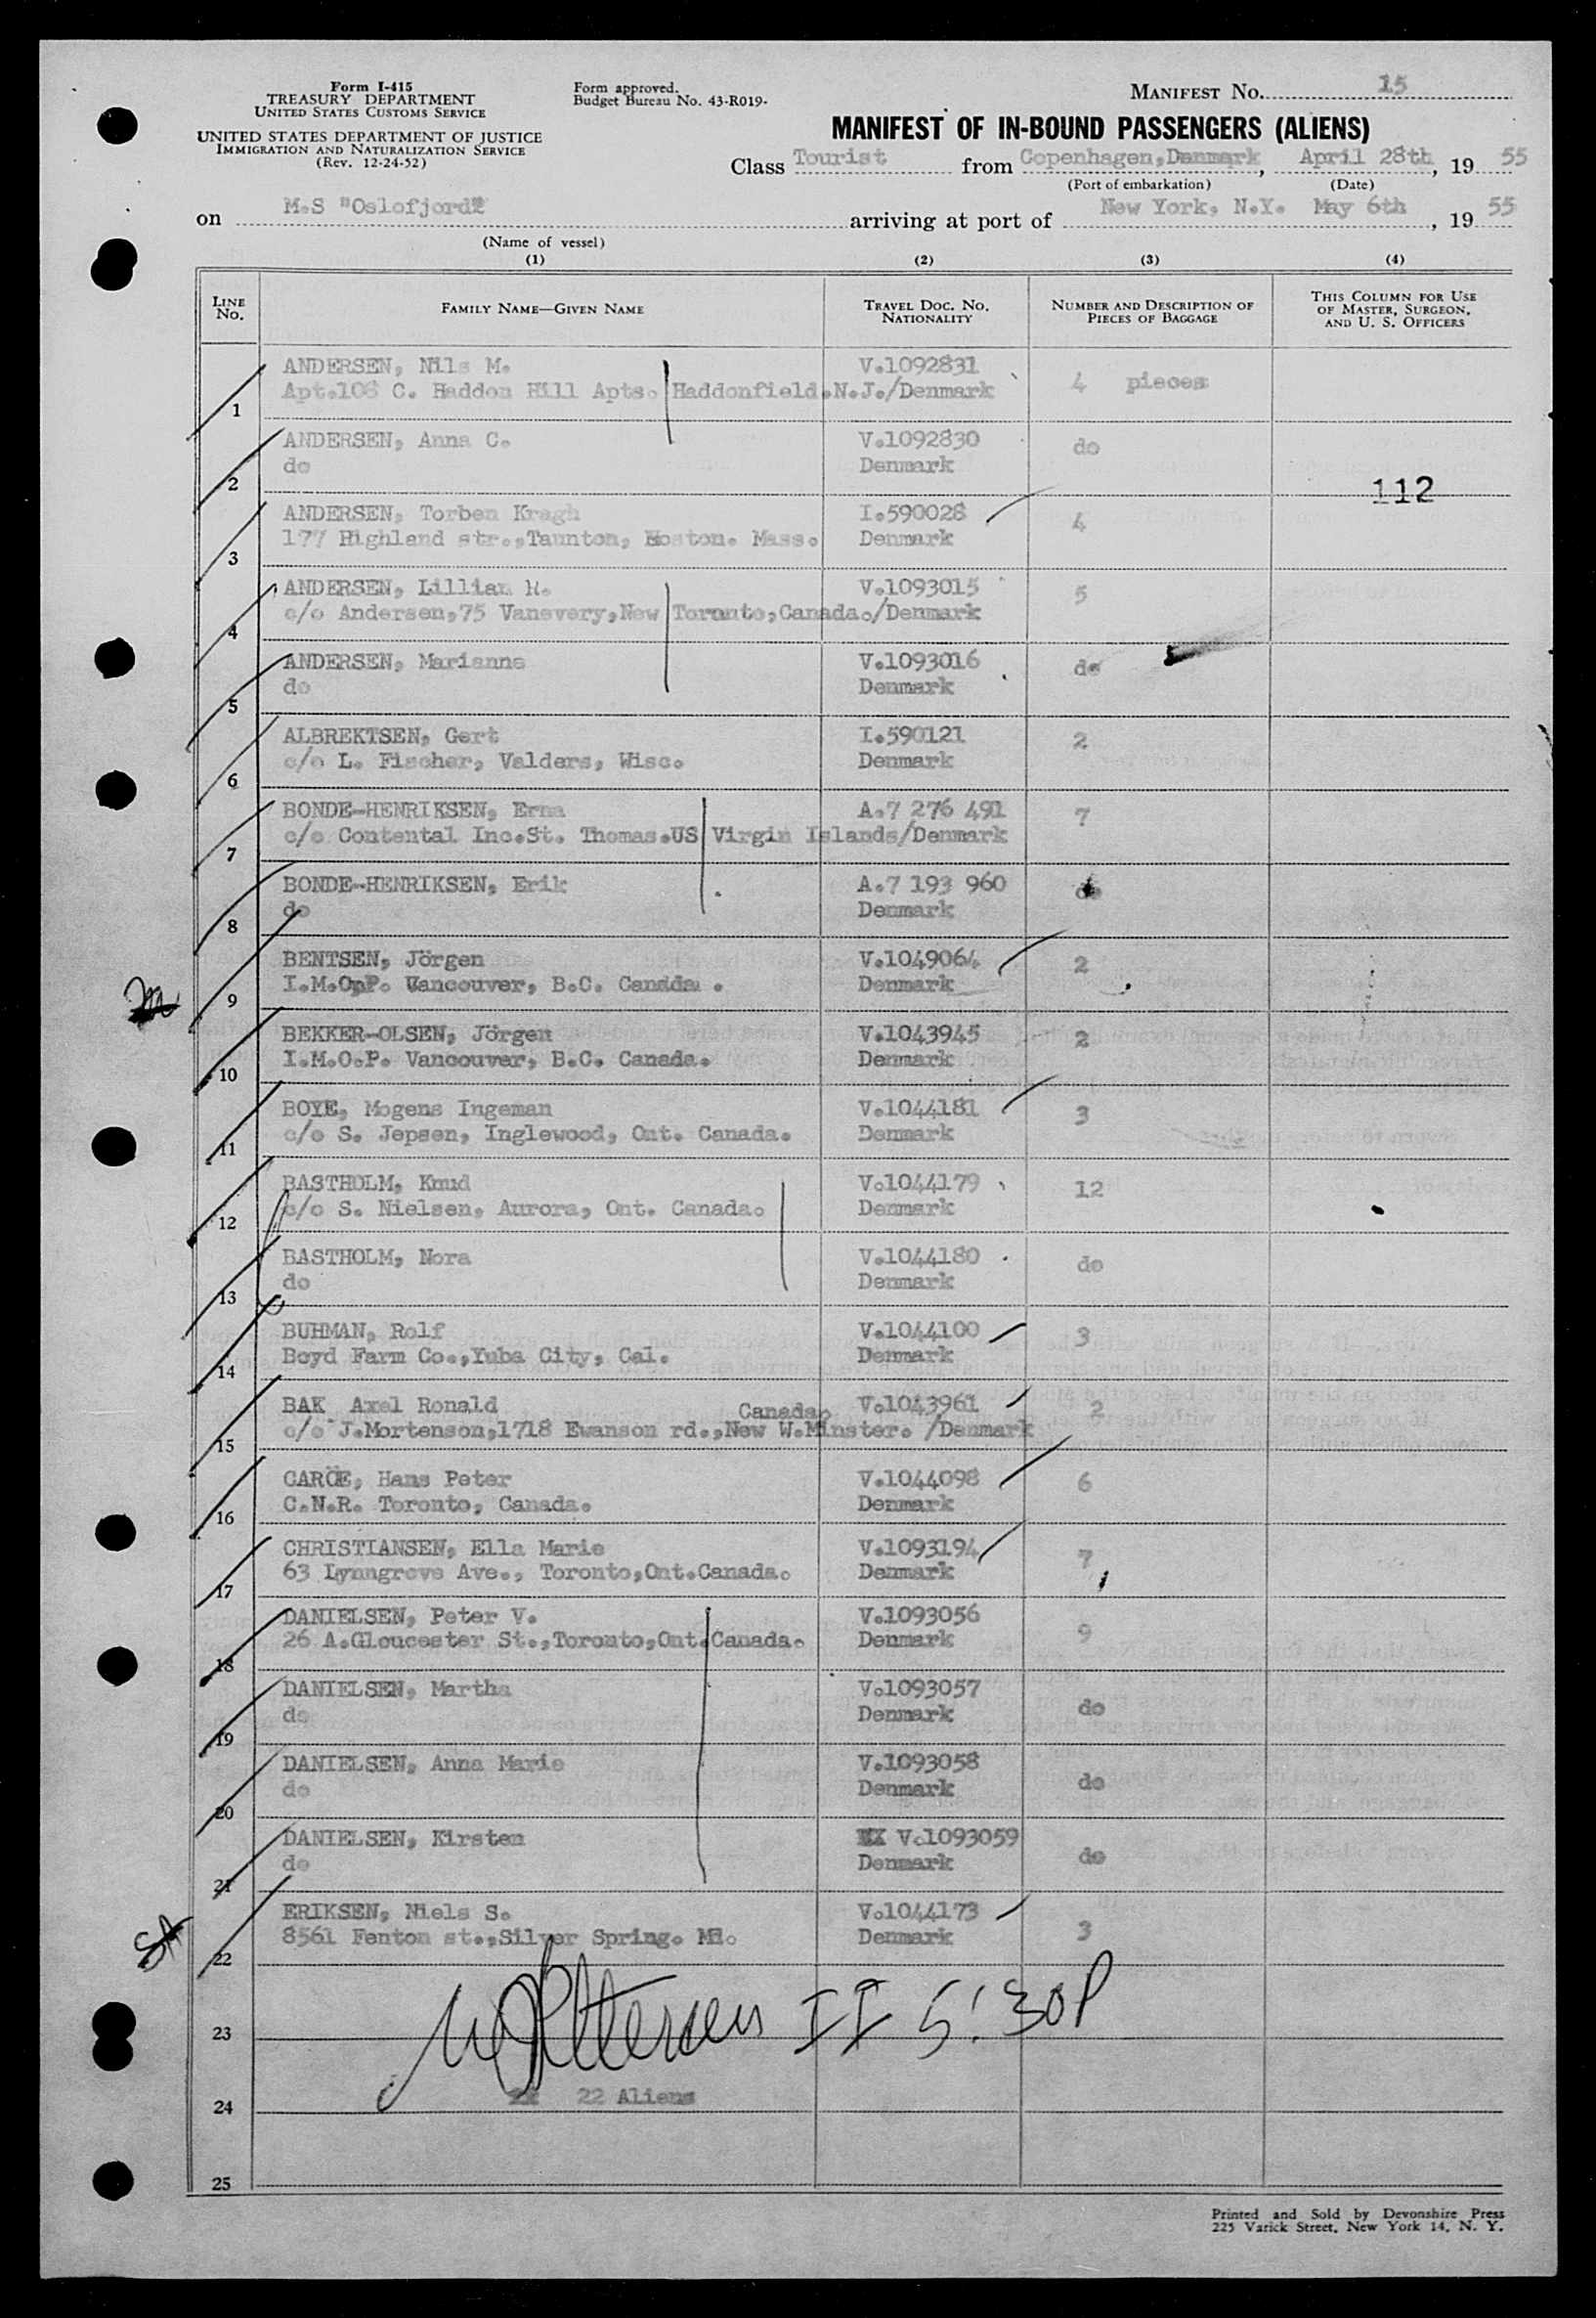 Form I-415
TREASURY DEPARTMENT
UNITED STATES CUSTOMS SERVICE
UNITED STATES DEPARTMENT OF JUSTICE
IMMIGRATION AND NATURALIZATION SERVICE
(Rev. 12-24-52)
Form approved.
Budget Bureau No. 43-R019-
MANIFEST NO. 15
MANIFEST OF IN-BOUND PASSENGERS (ALIENS)
Class Tourist from Copenhagen,Denmark, April 28th, 19 55
(Port of embarkation) (Date)
on M.S "Oslofjord" arriving at port of New York, N.Y. May 6th, 19 55
(Name of vessel)
(1) (2) (3) (4)
LINE NO. FAMILY NAME—GIVEN NAME TRAVEL DOC. NO. NATIONALITY NUMBER AND DESCRIPTION OF PIECES OF BAGGAGE THIS COLUMN FOR USE OF MASTER, SURGEON, AND U. S. OFFICERS
ANDERSEN, Nils M. V.1092831
1 Apt.106 C. Haddon Hill Apts. Haddonfield.N.J./Denmark 4 pieces
ANDERSEN, Anna C. V.1092830 do
2 do Denmark
112
ANDERSEN, Torben Kragh I.590028 4
3 177 Highland str.,Taunton, Boston. Mass. Denmark
ANDERSEN, Lillian R. V.1093015 5
4 c/o Andersen,75 Vanevery,New Toronto,Canada./Denmark
ANDERSEN, Marianne V.1093016 do
5 do Denmark
ALBREKTSEN, Gert I.590121 2
6 c/o L. Fischer, Valders, Wisc. Denmark
BONDE-HENRIKSEN, Erna A.7 276 491 7
7 c/o Contental Inc.St. Thomas.US Virgin Islands/Denmark
BONDE-HENRIKSEN, Erik A.7 193 960 do
8 do Denmark
BENTSEN, Jörgen V.1049064 2
9 I.M.O.P. Vancouver, B.C. Canada . Denmark
BEKKER-OLSEN, Jörgen V.1043945 2
10 I.M.O.P. Vancouver, B.C. Canada. Denmark
BOYE, Mogens Ingeman V.1044181 3
11 c/o S. Jepsen, Inglewood, Ont. Canada. Denmark
BASTHOLM, Knud V.1044179 12
12 c/o S. Nielsen, Aurora, Ont. Canada. Denmark
BASTHOLM, Nora V.1044180 do
13 do Denmark
BUHMAN, Rolf V.1044100 3
14 Boyd Farm Co.,Yuba City, Cal. Denmark
BAK Axel Ronald Canada, V.1043961 2
15 c/o J.Mortenson,1718 Ewanson rd.,New W.Minster. /Denmark
CAROE, Hans Peter V.1044098 6
16 C.N.R. Toronto, Canada. Denmark
CHRISTIANSEN, Ella Marie V.1093194 7
17 63 Lynngrove Ave., Toronto,Ont.Canada. Denmark
DANIELSEN, Peter V. V.1093056 9
18 26 A.Gloucester St.,Toronto,Ont.Canada. Denmark
DANIELSEN, Martha V.1093057 do
19 do Denmark
DANIELSEN, Anna Marie V.1093058 do
20 do Denmark
DANIELSEN, Kirsten V.1093059 do
21 do Denmark
ERIKSEN, Niels S. V.1044173 3
22 8561 Fenton st.,Silver Spring. Md. Denmark
23 II 5:30P
24 22 Aliens
25
Printed and Sold by Devonshire Press
225 Varick Street, New York 14, N. Y.